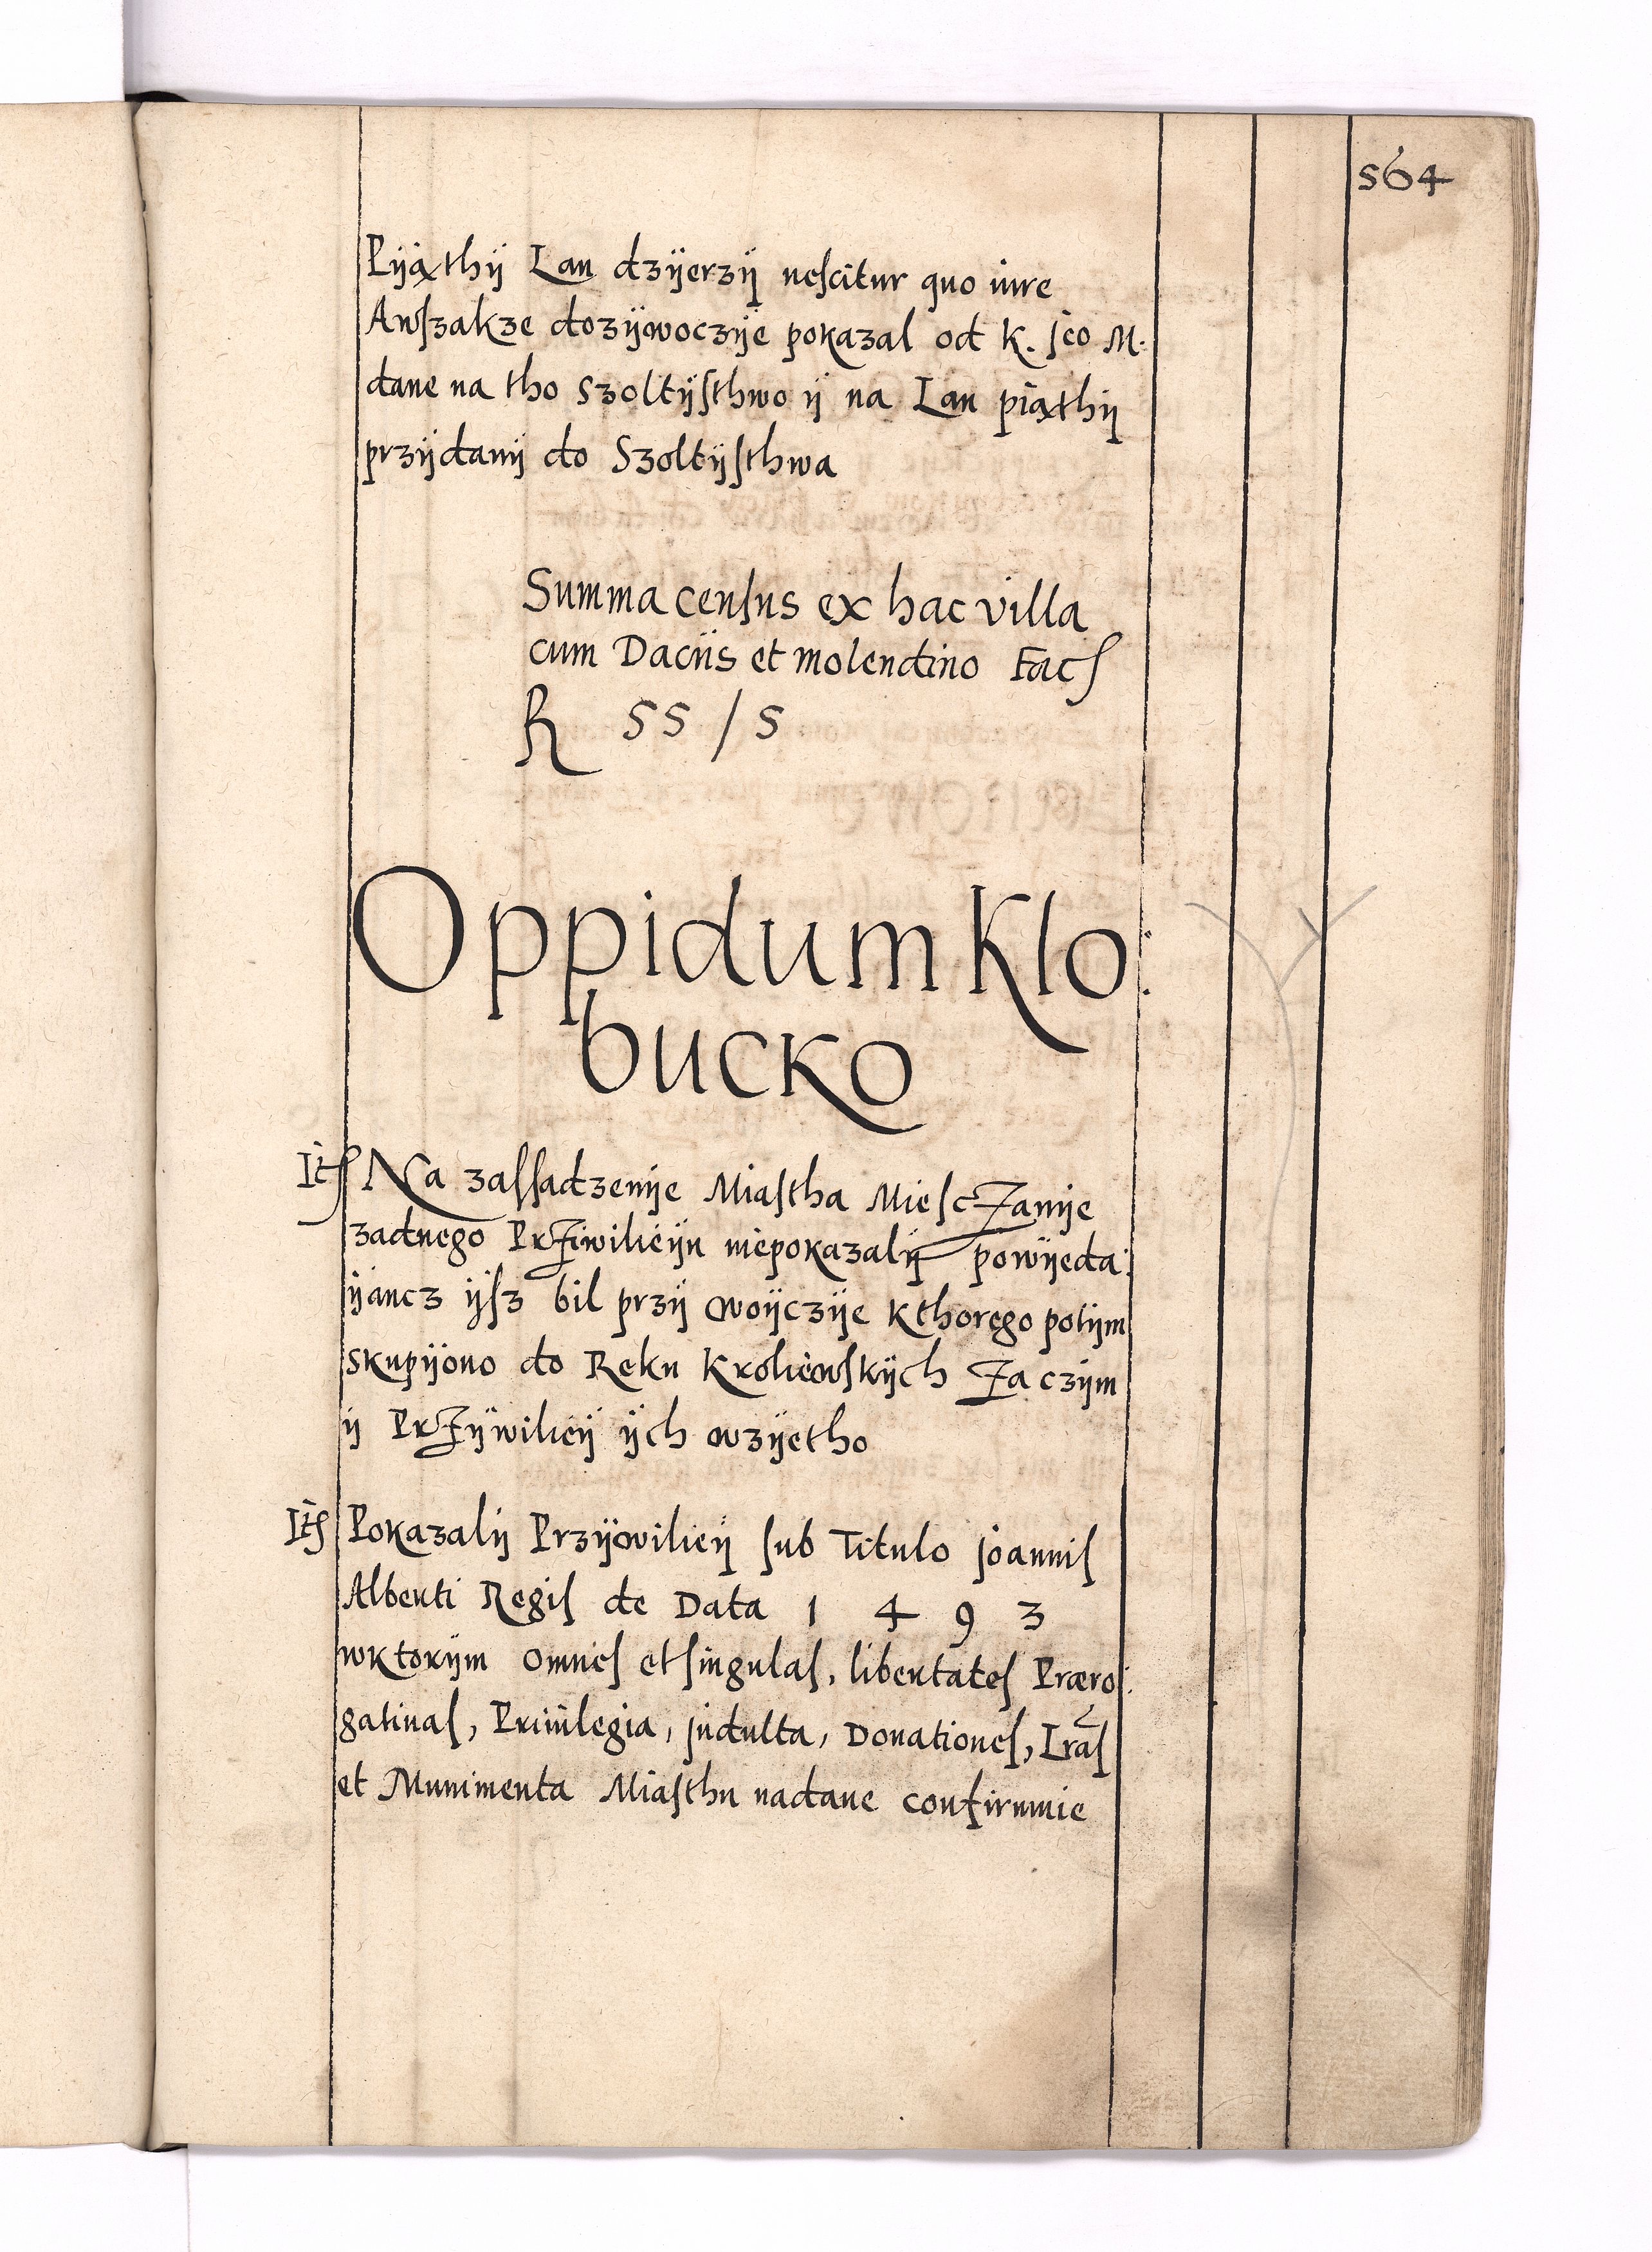 564
Pyąthy Lan dzyerzy nescitur quo iure
Awszakze dozywoczye pokazal od K. Jeo M.
dane na tho Szoltysthwo y na Lan piąthy
przydany do Szoltysthwa
Summa census ex hac villa
cum Daciis et molendino Facſ
R 55 / 5
Oppidum Klo:
bucko
Itſ Na zaſſadzenije Miastha Miesczanije
zadnego Prziwilieyu niepokazaly powyeda:
yancz ysz bil przy woyczye kthorego potym
skupyono do Reku Kroliewskych Za czym
y Przywiliey ych wzyetho
Itſ Pokazaly Przywiliey sub Titulo Joannis
Alberti Regis de Data 1 4 9 3
wktorym omnes et singulas, libertates Præro:
gatiuas, Priuilegia, Indulta, Donationes, Lrãs
et Munimenta Miasthu nadane confirmuie